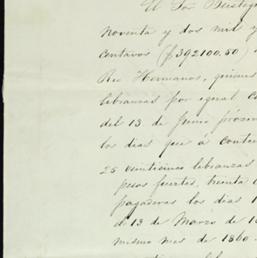 El Sor Beistegui
noventa y dos mil y
centavos ($392100.50)
Rio Hermanos, quienes
libranzas por igual
del 13 de Junio próximo
los dias que á contar
25 veinticinco libranzas
pesos fuertes, treinta
pagaderas los dias 1
el 13 de Marzo de 18
mismo mes de 1860.